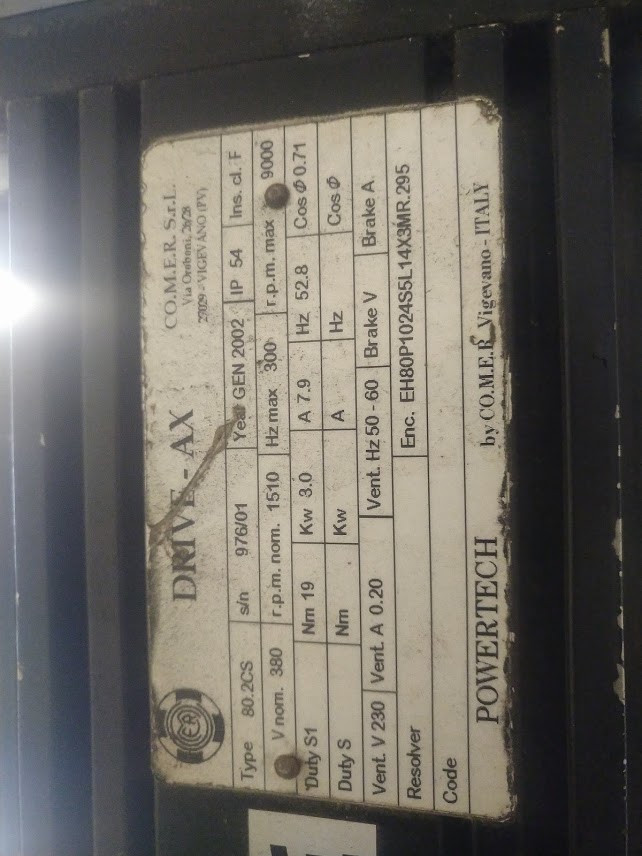 DRIVE - AX
CO.M.E.R. S.r.l.
Via Oroboni, 26/28
27029 - VIGEVANO (PV)
Type 80.2CS s/n 976/01 Year GEN 2002 IP 54 Ins. cl. F
V nom. 380 r.p.m. nom. 1510 Hz max 300 r.p.m. max 9000
Duty S1 Nm 19 Kw 3.0 A 7.9 Hz 52.8 Cos Φ 0.71
Duty S Nm Kw A Hz Cos Φ
Vent. V 230 Vent. A 0.20 Vent. Hz 50 - 60 Brake V Brake A
Resolver Enc. EH80P1024S5L14X3MR.295
Code
POWERTECH by CO.M.E.R. Vigevano - ITALY